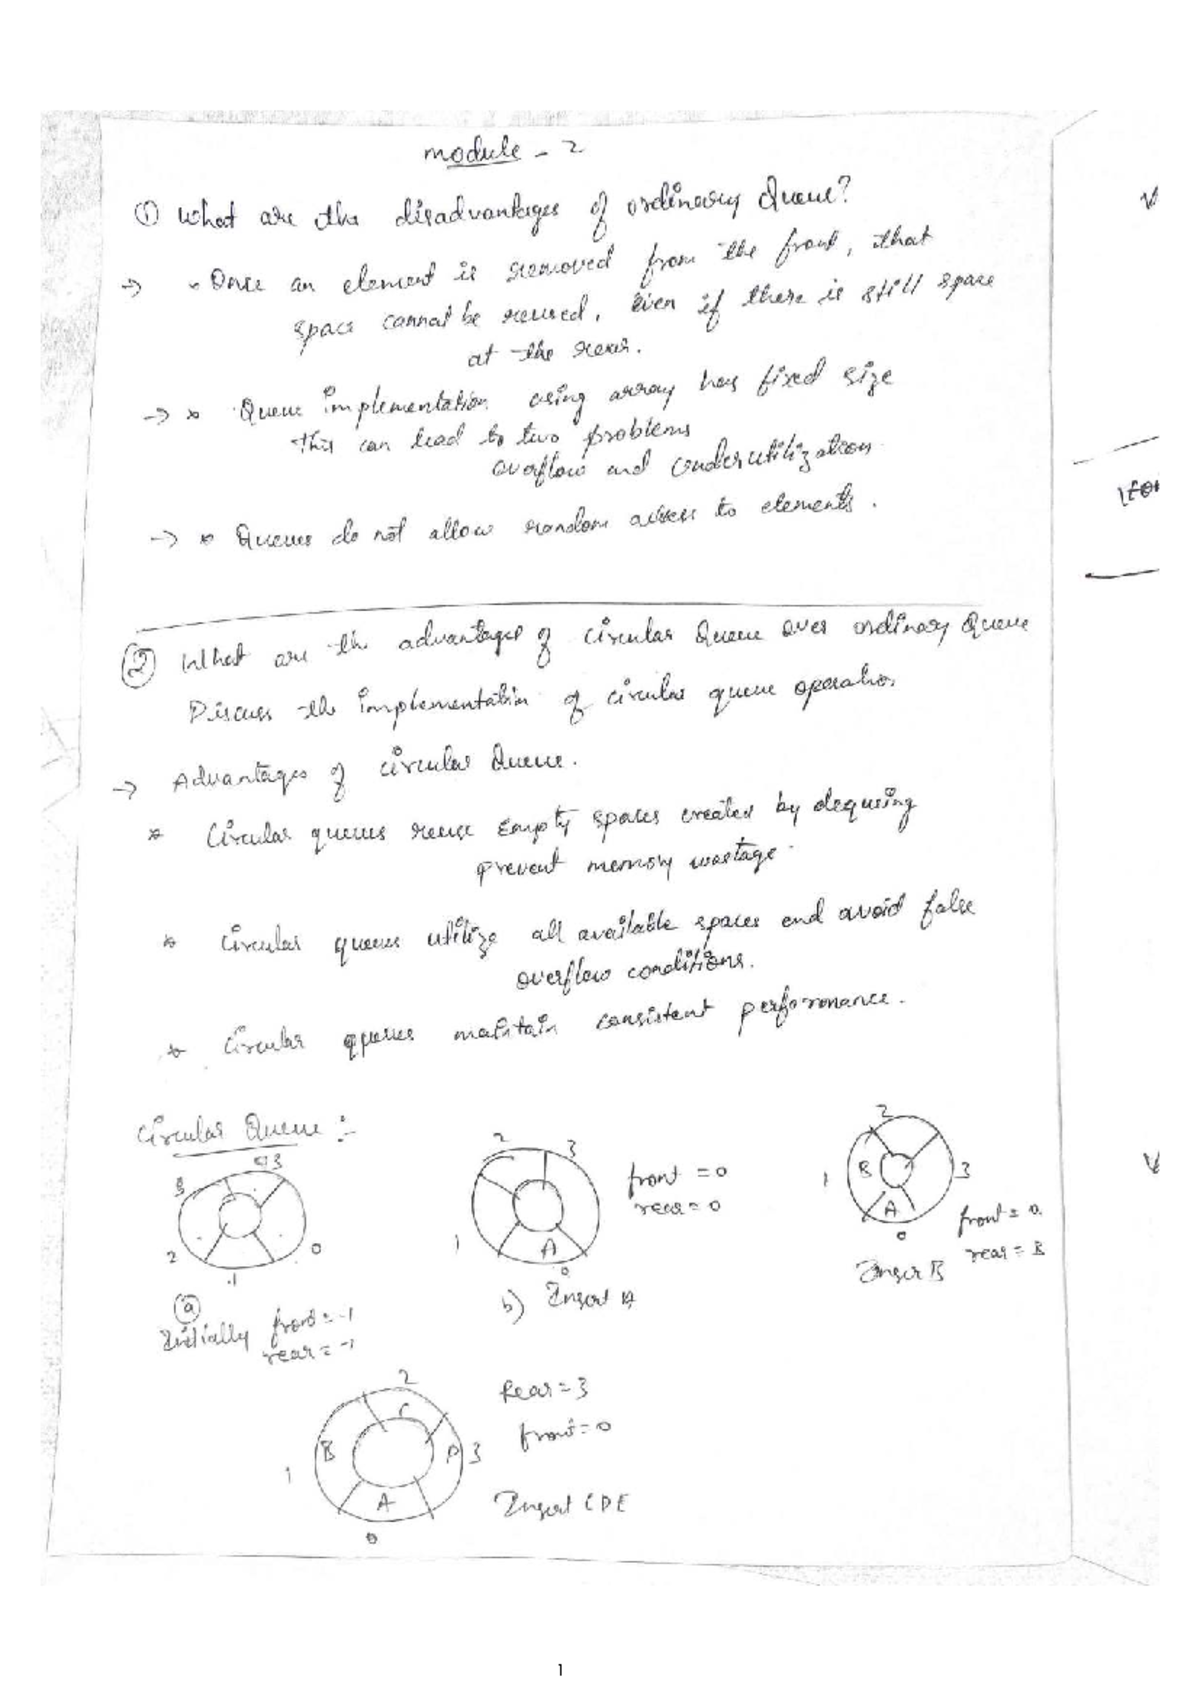 module - 2
① What are the disadvantages of ordinary Queue?
→ • Once an element is removed from the front, that
space cannot be reused, Even if there is still space
at the rear.
→ * Queue implementation using array has fixed size
this can lead to two problems
overflow and underutilization
→ * Queues do not allow random access to elements.
② What are the advantages of circular Queue over ordinary Queue
Discuss the implementation of circular queue operation
→ Advantages of circular Queue.
* Circular queues reuse Empty spaces created by dequeing
prevent memory wastage.
* Circular queues utilize all available spaces and avoid false
overflow conditions.
* Circular queues maintain consistent performance.
Circular Queue :-
3
2
1
0
ⓐ
Initially front = -1
rear = -1
2
3
1
A
0
front = 0
rear = 0
b) Insert A
2
1
B
3
A
0
front = 0
rear = B
Insert B
2
C
B
D
3
1
A
0
Rear = 3
front = 0
Insert CDE
1